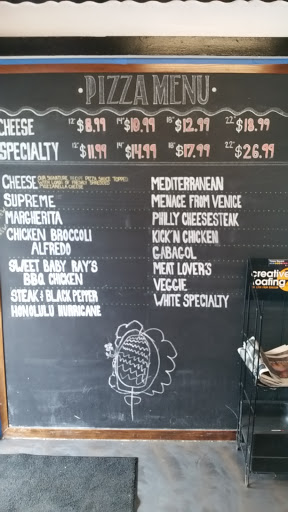 PIZZA MENU
CHEESE 12" $8.99 14" $10.99 16" $12.99 22" $18.99
SPECIALTY 12" $11.99 14" $14.99 16" $17.99 22" $26.99
CHEESE
SUPREME
MARGHERITA
CHICKEN BROCCOLI
ALFREDO
SWEET BABY RAY'S
BBQ CHICKEN
STEAK & BLACK PEPPER
HONOLULU HURRICANE
MEDITERRANEAN
MENACE FROM VENICE
PHILLY CHEESESTEAK
KICK'N CHICKEN
GABAGOL
MEAT LOVER'S
VEGGIE
WHITE SPECIALTY
creative
oafing